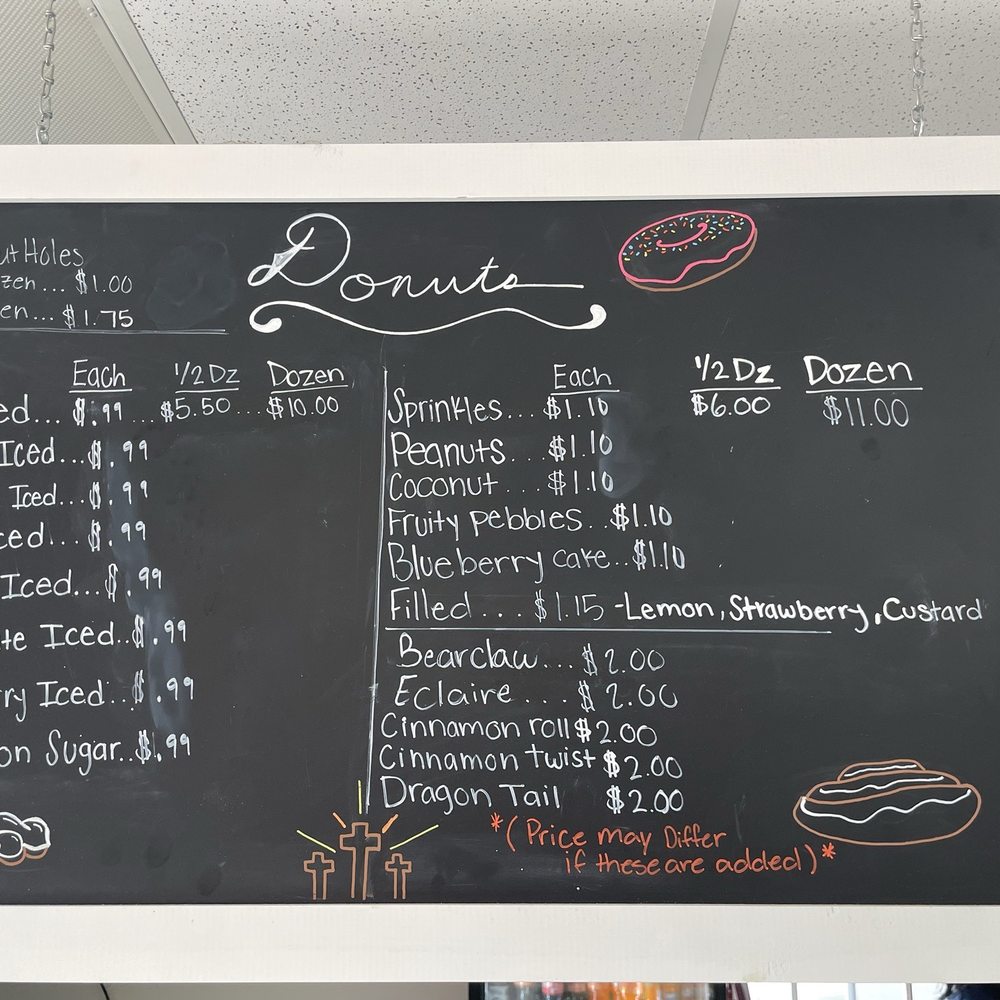 Donuts
ut Holes
zen... $1.00
en... $1.75
Each 1/2 Dz Dozen
ed... $.99 ... $5.50... $10.00
Iced...$.99
Iced...$.99
ced...$.99
Iced...$.99
te Iced..$.99
ry Iced...$.99
on Sugar..$.99
Each 1/2 Dz Dozen
Sprinkles... $1.10 $6.00 $11.00
Peanuts... $1.10
Coconut... $1.10
Fruity pebbles..$1.10
Blueberry cake..$1.10
Filled... $1.15 -Lemon, Strawberry, Custard
Bearclaw... $2.00
Eclaire... $2.00
Cinnamon roll $2.00
Cinnamon twist $2.00
Dragon Tail $2.00
*(Price may Differ
if these are added)*